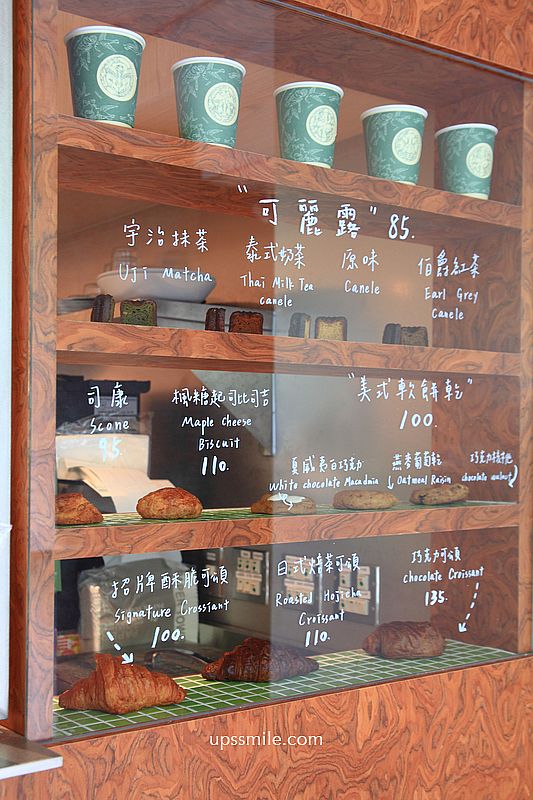 "可麗露" 85.
宇治抹茶
Uji Matcha
泰式奶茶
Thai Milk Tea
canele
原味
Canele
伯爵紅茶
Earl Grey
Canele
司康
Scone
95.
楓糖起司比司吉
Maple Cheese
Biscuit
110.
"美式軟餅乾"
100.
夏威夷白巧克力
White chocolate Macadnia
燕麥葡萄乾
Oatmeal Raisin
chocolate walnut
招牌酥脆可頌
Signature Crossiant
100.
日式焙茶可頌
Roasted Hojicha
Croissant
110.
巧克力可頌
chocolate Croissant
135.
upssmile.com